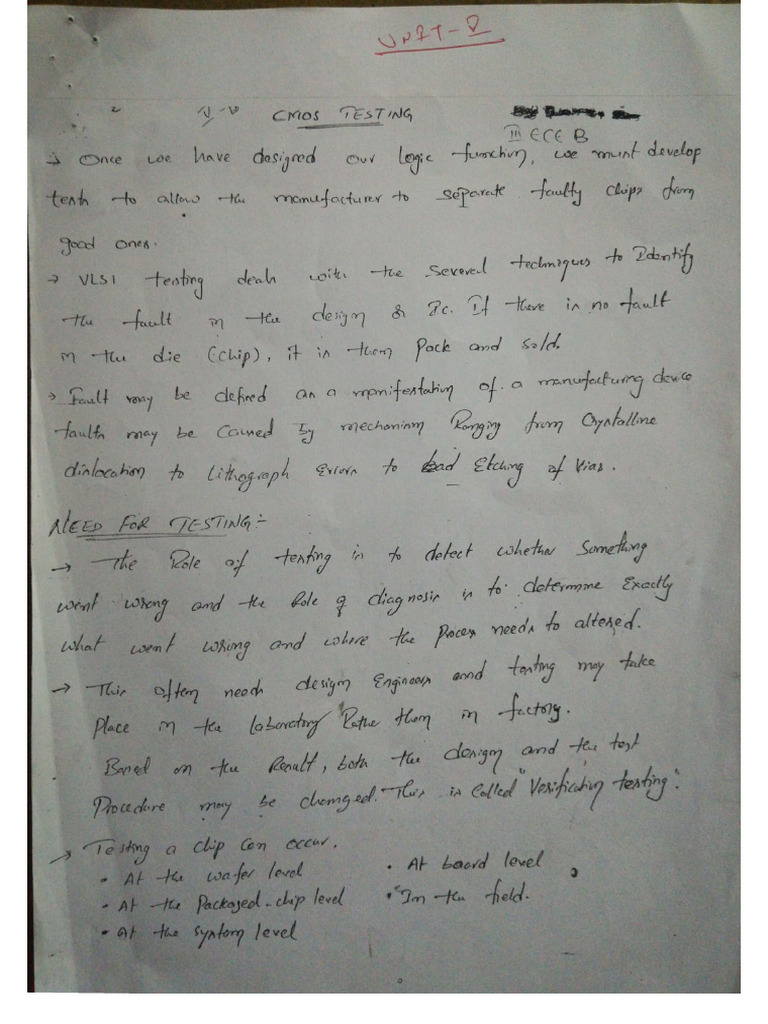 UNIT-V
CMOS TESTING
III ECE B
→ Once we have designed our logic function, we must develop
tests to allow the manufacturer to separate faulty chips from
good ones.
→ VLSI testing deals with the several techniques to Identify
the fault in the design & Ic. If there is no fault
in the die (chip), it is them Pack and sold.
→ Fault may be defined as a manifestation of a manufacturing device
faults may be caused by mechanism Ranging from Crystalline
dislocation to Lithograph Errors to bad Etching of Vias.
NEED FOR TESTING:-
→ The Role of testing is to detect whether Something
went wrong and the Role of diagnosis is to determine Exactly
what went wrong and where the Process needs to altered.
→ This often needs design Engineers and testing may take
Place in the laboratory Rathe them in factory.
Based on the Result, both the design and the test
Procedure may be changed. This is Called "Verification testing".
→ Testing a chip Can occur.
• At the wafer level • At board level
• At the Packaged-chip level • In the field.
• At the system level